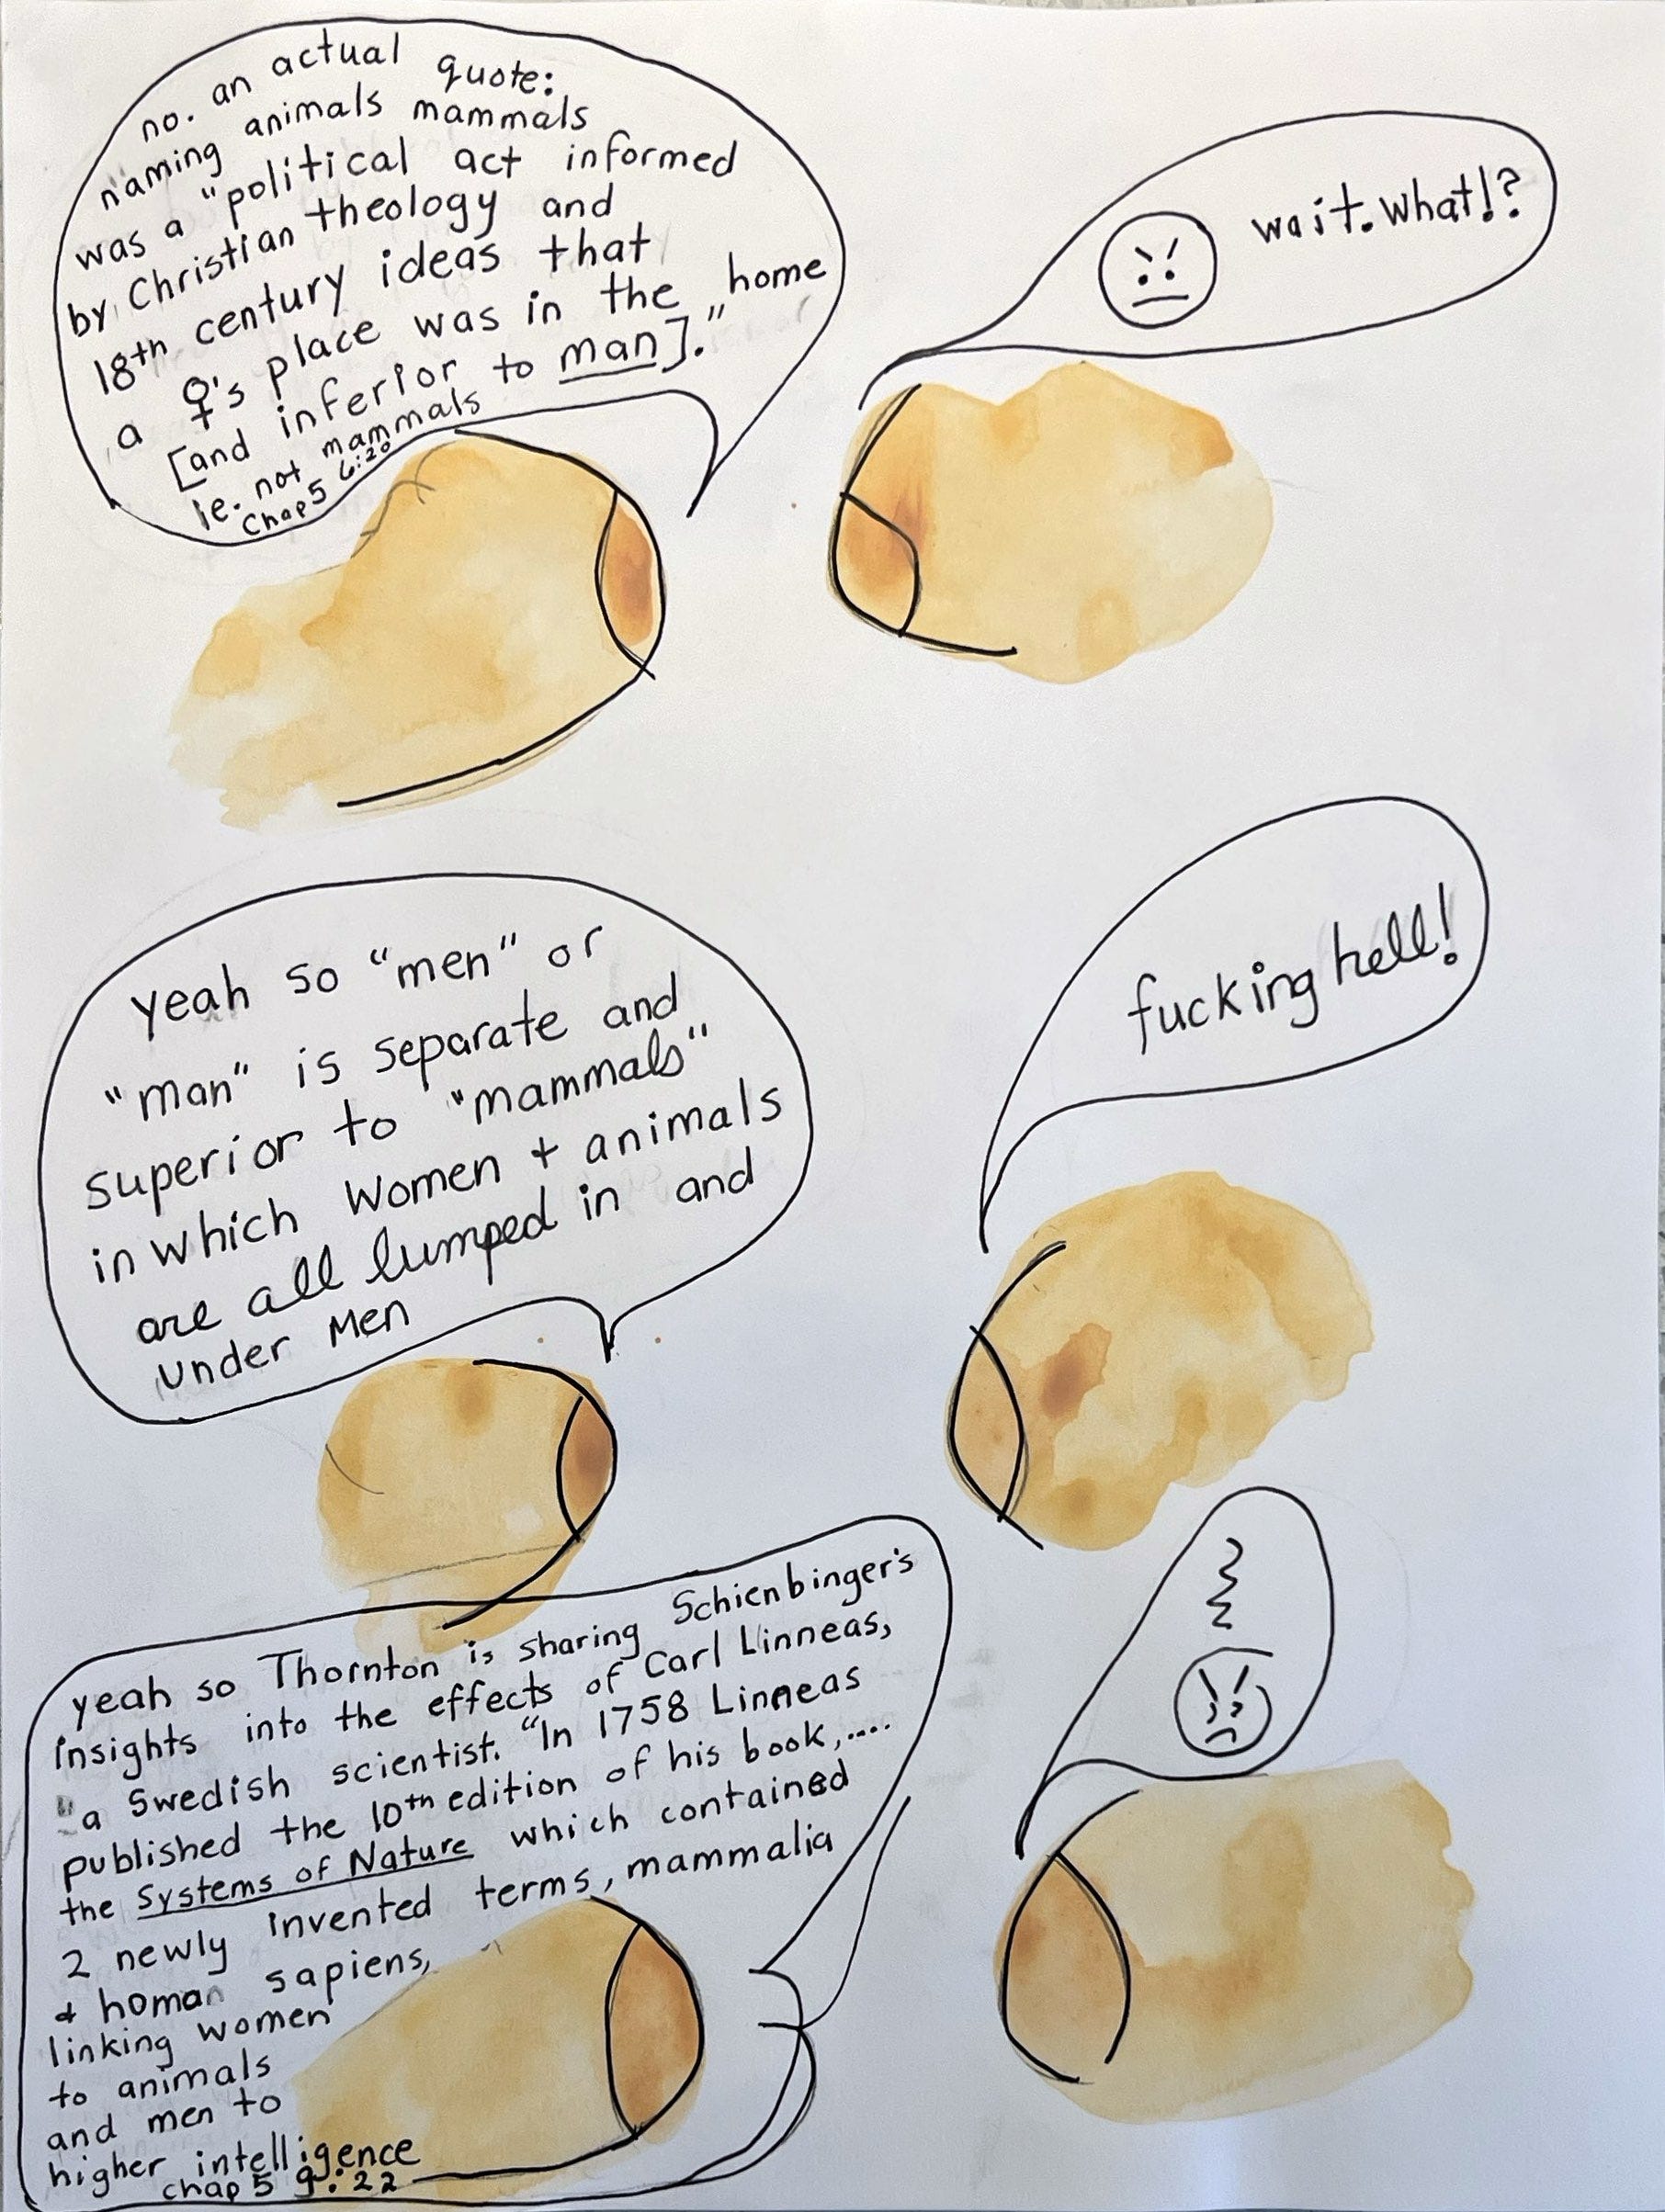 no. an actual quote:
naming animals mammals
was a "political act informed
by Christian theology and
18th century ideas that
a ♀'s place was in the home
[and inferior to man]."
ie. not mammals
Chap 5 6:20
wait. what!?
yeah so "men" or
"man" is separate and
superior to "mammals"
in which women + animals
are all lumped in and
under Men
fucking hell!
yeah so Thornton is sharing Schienbinger's
insights into the effects of Carl Linneas,
"a Swedish scientist. "In 1758 Linneas
published the 10th edition of his book,....
the Systems of Nature which contained
2 newly invented terms, mammalia
+ homan sapiens,
linking women
to animals
and men to
higher intelligence
chap 5 9:22